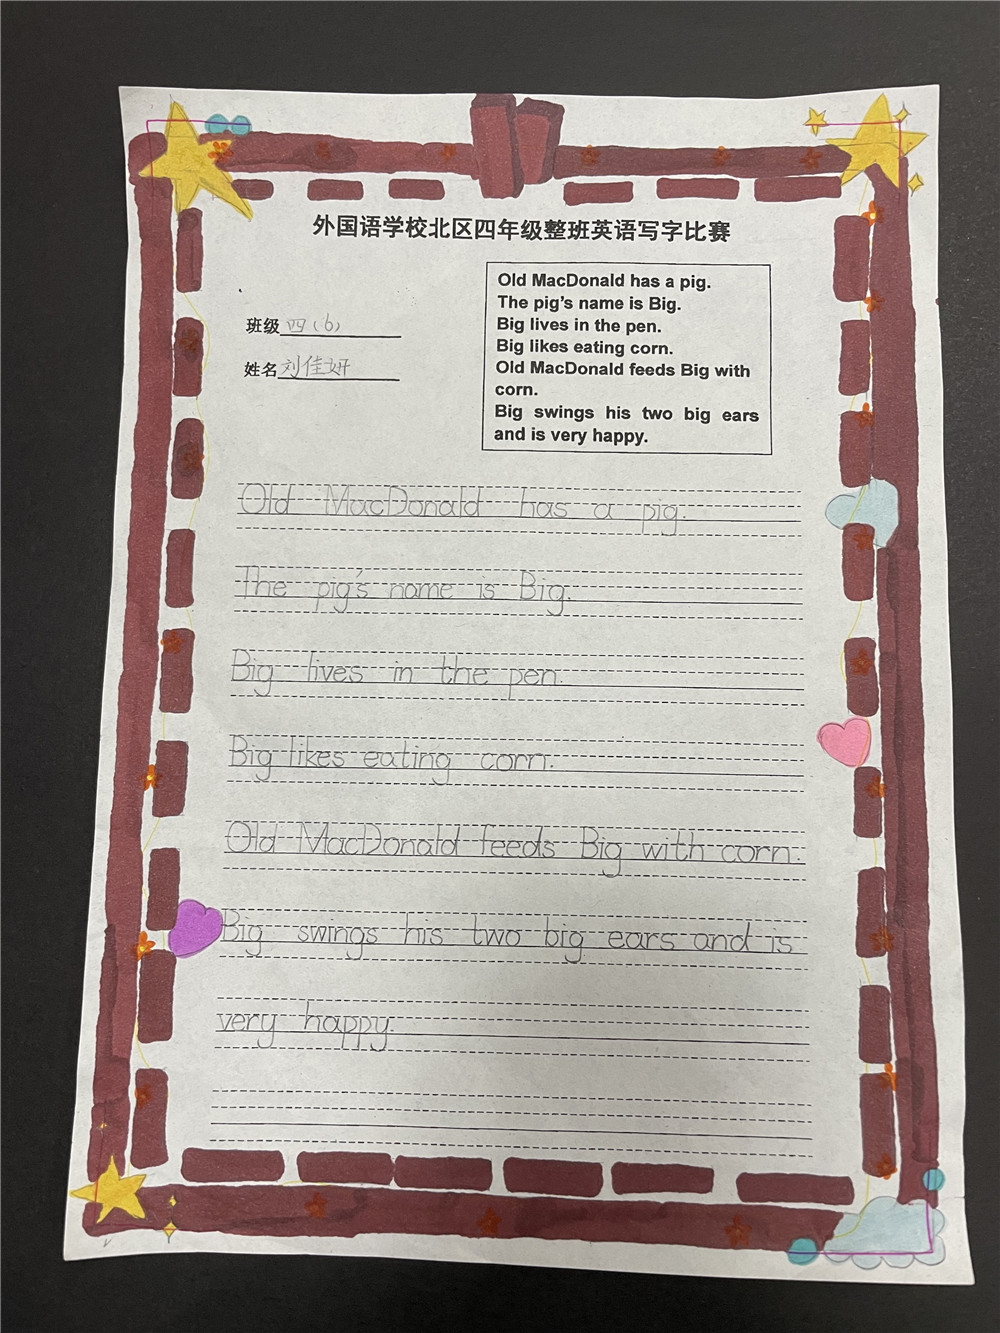 外国语学校北区四年级整班英语写字比赛
班级 四（6）
姓名 刘佳妍
Old MacDonald has a pig.
The pig's name is Big.
Big lives in the pen.
Big likes eating corn.
Old MacDonald feeds Big with
corn.
Big swings his two big ears
and is very happy.
Old MacDonald has a pig.
The pig's name is Big.
Big lives in the pen.
Big likes eating corn.
Old MacDonald feeds Big with corn.
Big swings his two big ears and is
very happy.